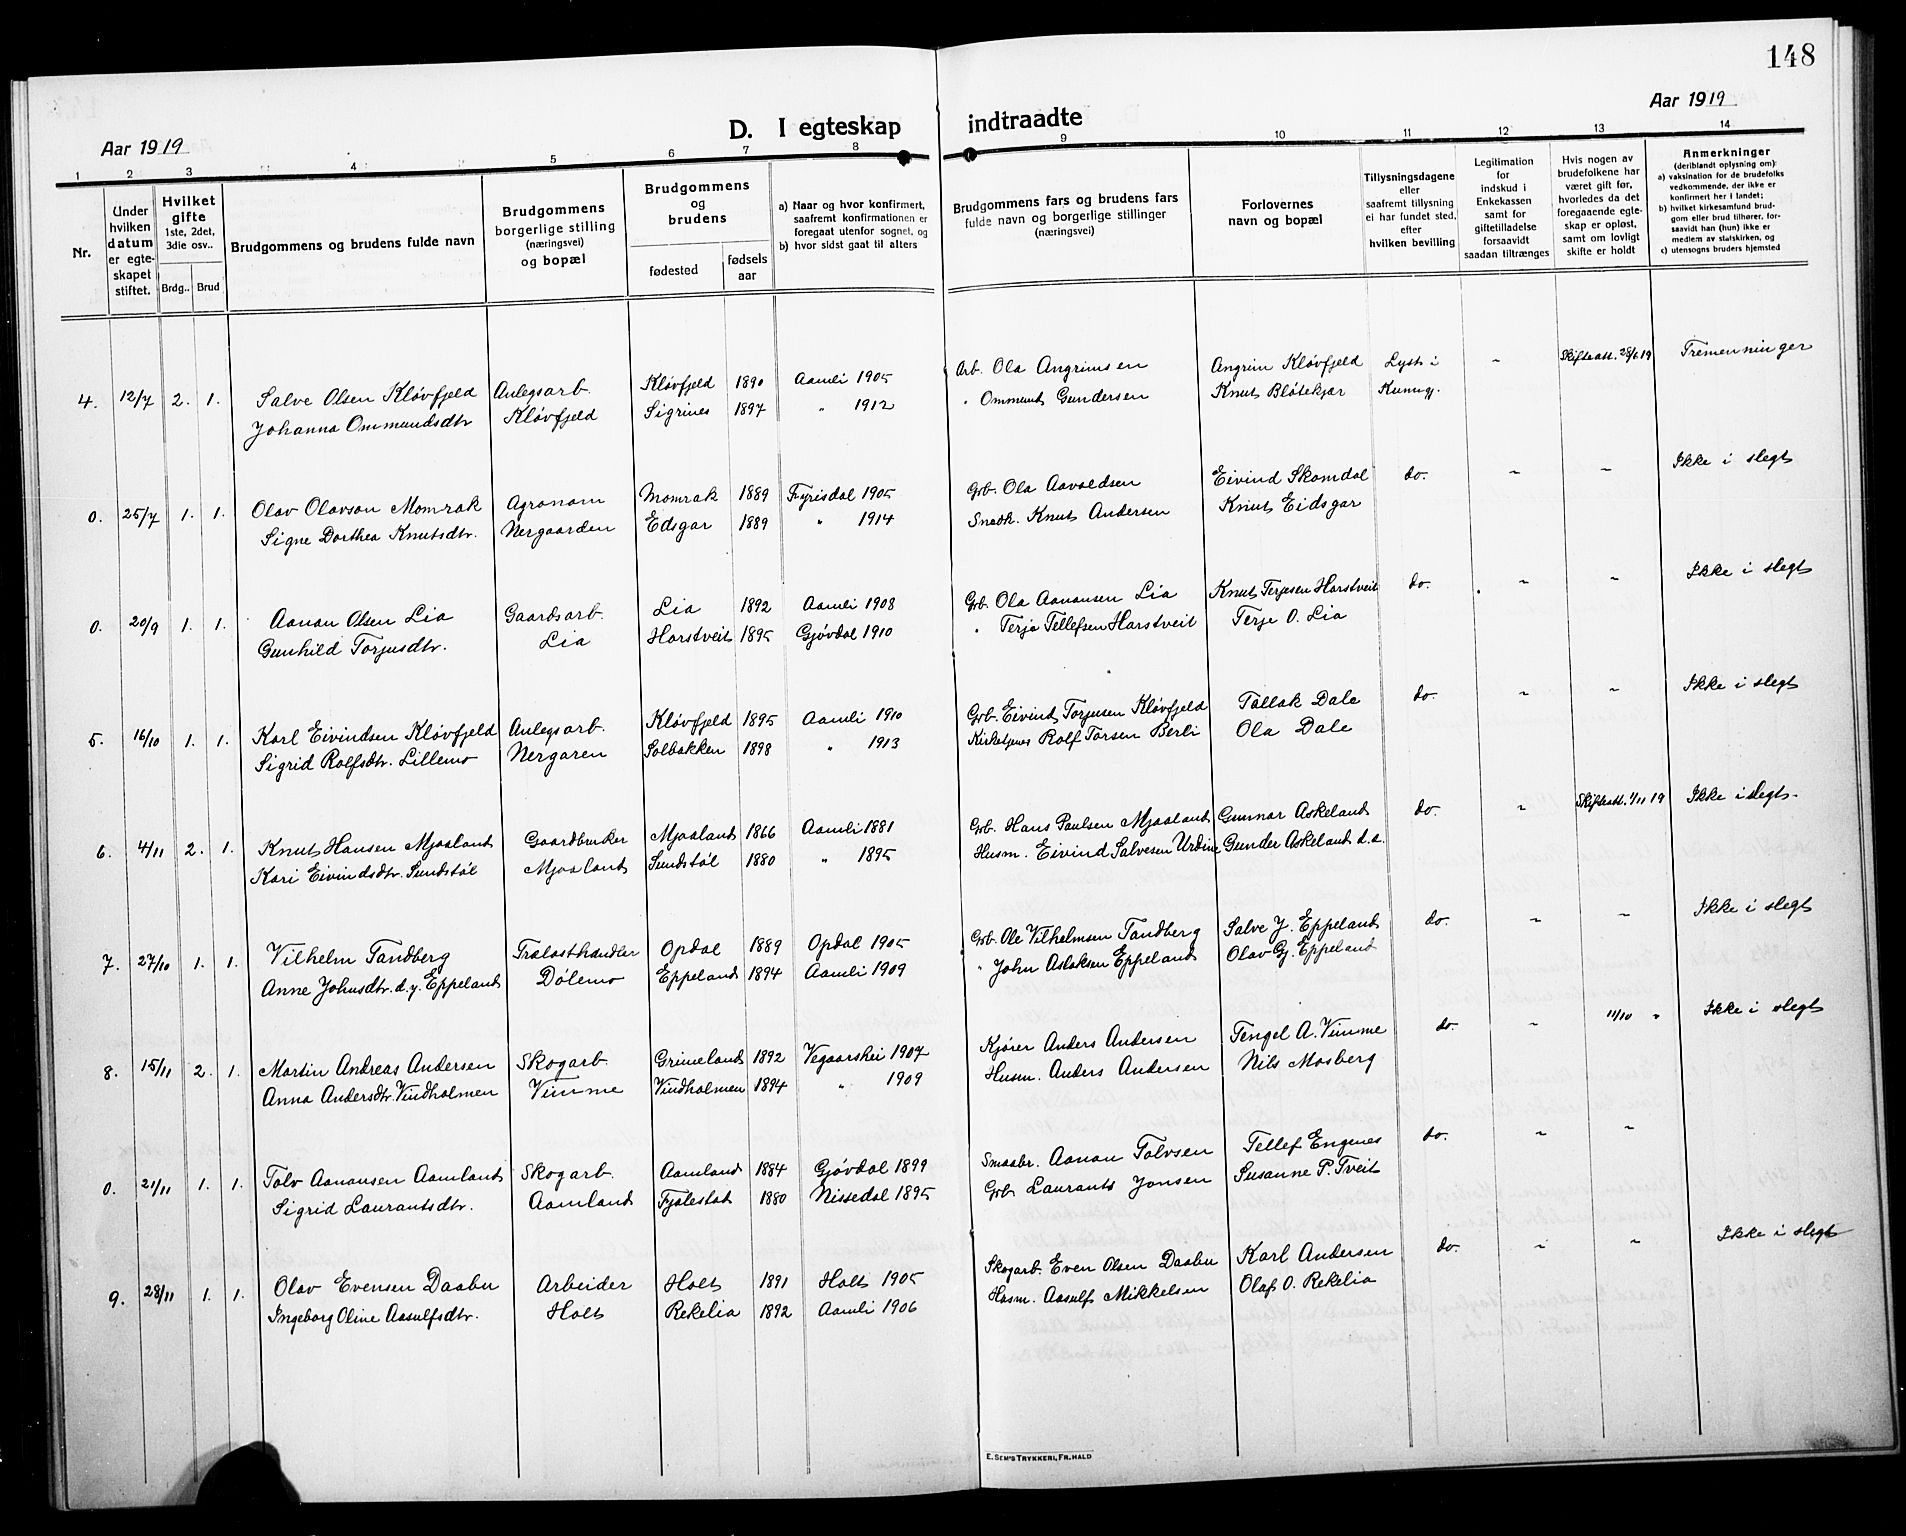 148
Aar 1919
D. I egteskap indtraadte
Aar 1919
1 2 3 4 5 6 7 8 9 10 11 12 13 14
Nr.
Under hvilken datum er egteskapet stiftet.
Hvilket gifte 1ste, 2det, 3die osv..
Brdg.. Brud
Brudgommens og brudens fulde navn
Brudgommens borgerlige stilling (næringsvei) og bopæl
Brudgommens og brudens
fødested
fødselsaar
a) Naar og hvor konfirmert, saafremt konfirmationen er foregaat utenfor sognet, og
b) hvor sidst gaat til alters
Brudgommens fars og brudens fars fulde navn og borgerlige stillinger (næringsvei)
Forlovernes navn og bopæl
Tillysningsdagene eller saafremt tillysning ei har fundet sted, efter hvilken bevilling
Legitimation for indskud i Enkekassen samt for giftetilladelse forsaavidt saadan tiltrænges
Hvis nogen av brudefolkene har været gift før, hvorledes da det foregaaende egteskap er opløst, samt om lovligt skifte er holdt
Anmerkninger
(deriblandt oplysning om):
a) vaksination for de brudefolks vedkommende, der ikke er konfirmert her i landet;
b) hvilket kirkesamfund brudgom eller brud tilhører, forsaavidt han (hun) ikke er medlem av statskirken, og
c) utensogns bruders hjemsted
4. 12/7 2. 1. Salve Olsen Kløvfjeld Anlegsarb. Kløvfjeld 1890 Aamli 1905 Arb. Ola Angrimsen Angrim Kløvfjeld Lyst i ~ Skifteatt. 28/6 19 Tremenninger
Johanna Ommundsdtr Kløvfjeld Sigrines 1897 " 1912 " Ommund Gundersen Knut Bløtekjær Kunngj.
0. 25/7 1. 1. Olav Olavson Momrak Agronom Momrak 1889 Fyrisdal 1905 Grb. Ola Aavoldsen Eivind Skomdal do. ~ ~ Ikke i slegt
Signe Dorthea Knutsdtr. Nergaarden Edsgar 1889 " 1914 Snedk. Knut Andersen Knut Eidsgar
0. 20/9 1. 1. Aanan Olsen Lia Gaardsarb. Lia 1892 Aamli 1908 Grb. Ola Aanansen Lia Knut Terjesen Harstveit do. ~ ~ Ikke i slegt
Gunhild Torjusdtr. Lia Harstveit 1895 Gjøvdal 1910 " Terje Tellefsen Harstveit Terje O. Lia
5. 16/10 1. 1. Karl Eivindsen Kløvfjeld Anlegsarb. Kløvfjeld 1895 Aamli 1910 Grb. Eivind Torjusen Kløvfjeld Tallak Dale do. ~ ~ Ikke i slegt
Sigrid Rolfsdtr. Lillemo Nergaren Solbakken 1898 " 1913 Kirketjener Rolf Torsen Berli Ola Dale
6. 4/11 2. 1. Knut Hansen Mjaaland Gaardbruker Mjaaland 1866 Aamli 1881 Grb. Hans Paulsen Mjaaland Gunnar Askeland do. ~ Skifteatt. 1/11 19 Ikke i slegt.
Kari Eivindsdtr. Sundstøl Mjaaland Sundstøl 1880 " 1895 Husm. Eivind Salvesen Urdine Gunder Askeland d.e.
7. 27/10 1. 1. Vilhelm Tandberg Trælasthandler Opdal 1889 Opdal 1905 Grb. Ole Vilhelmsen Tandberg Salve J. Eppeland do. ~ ~ Ikke i slegt
Anne Johnsdtr. d.y. Eppeland Dølemo Eppeland 1894 Aamli 1909 " John Aslaksen Eppeland Olav Gj. Eppeland
8. 15/11 2. 1. Martin Andreas Andersen Skogarb. Grimeland 1892 Vegaarshei 1907 Kjører Anders Andersen Tengel A. Vimme do. ~ 11/10 " Ikke i slegt
Anna Andersdtr. Vindholmen Vimme Vindholmen 1894 " 1909 Husm. Anders Andersen Nils Mosberg
0. 21/11 1. 1. Tolv Aanansen Aamland Skogarb. Aamland 1884 Gjøvdal 1899 Smaabr. Aanan Tolvsen Tellef Engenes do. ~ ~
Sigrid Laurantsdtr. Aamland Fjalestad 1880 Nissedal 1895 Grb. Laurants Jonsen Susanne P. Tveit
9. 28/11 1. 1. Olav Evensen Daabu Arbeider Holt 1891 Holt 1905 Skogarb. Even Olsen Daabu Karl Andersen do. ~ ~ Ikke i slegt
Ingeborg Oline Aasulfsdtr. Holt Rekelia 1892 Aamli 1906 Husm. Aasulf Mikkelsen Olaf O. Rekelia
E. SEM'S TRYKKERI, FR.HALD